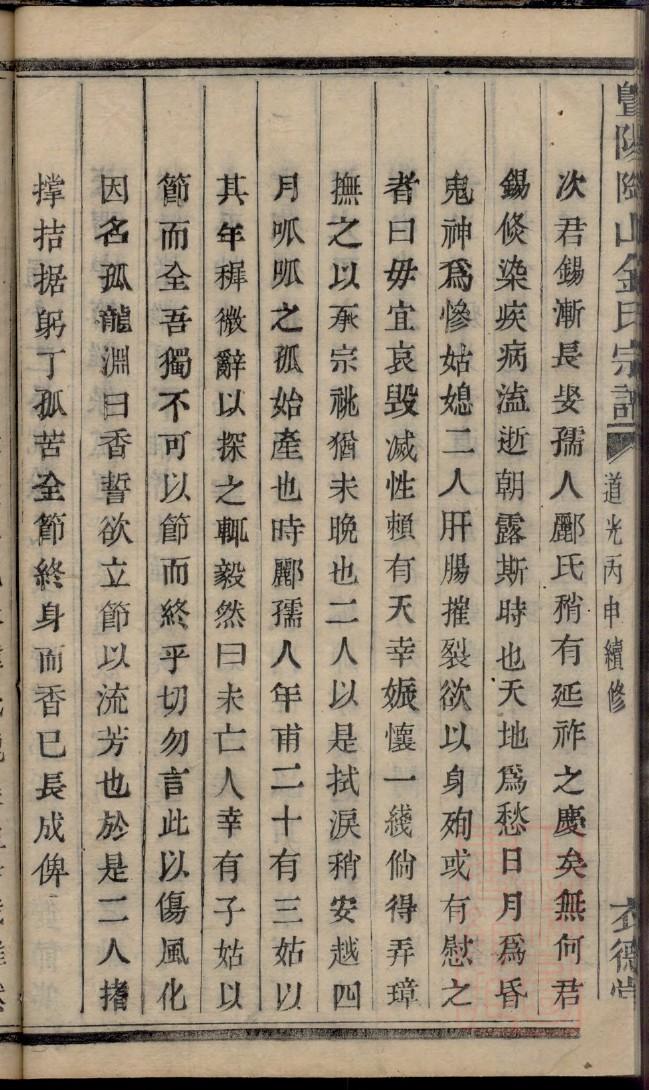 暨陽陶山金氏宗譜 道光丙申續修
次君錫漸長娶孺人酈氏稍有延祚之慶矣無何君
錫倏染疾病溘逝朝露斯時也天地爲愁日月爲昏
鬼神爲慘姑媳二人肝腸摧裂欲以身殉或有慰之
者曰毋宜哀毁滅性賴有天幸娠懷一綫倘得弄璋
撫之以承宗祧猶未晚也二人以是拭淚稍安越四
月呱呱之孤始產也時酈孺人年甫二十有三姑以
其年穉微辭以探之輒毅然曰未亡人幸有子姑以
節而全吾獨不可以節而終乎切勿言此以傷風化
因名孤龍淵曰香誓欲立節以流芳也於是二人搘
撑拮据躬丁孤苦全節終身而香巳長成俾